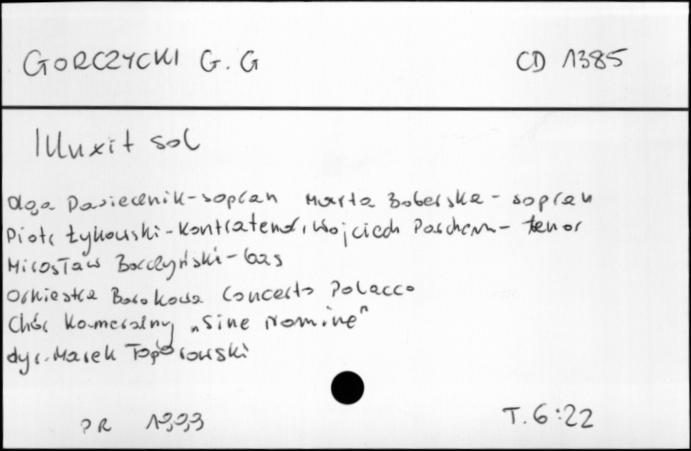 GORCZYCKI G. G CD 1385
Illuxit sol
Olga Pasiecznik - sopran Marta Boberska - sopran
Piotr Łykowski - Kontratenor, Wojciech Parchem - tenor
Mirosław Borczyński - bas
Orkiestra Barokowa Concerto Polacco
Chór Kameralny „Sine Nomine"
dyr. Marek Toporowski
PR 1993 T. 6:22